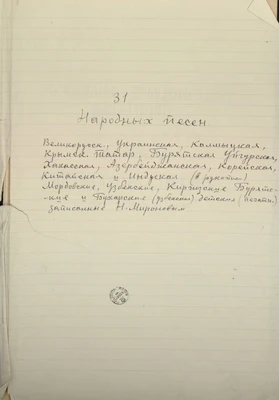 31
Народных песен
Великорусск, Украинская, Калмыцкая,
Крымск. Татар, Бурятская Унгурская,
Хакасская, Азербейджанская, Корейская,
Китайская и Индусская (в рукописи)
Мордовские, Узбекские, Киргизские Бурятс-
-кие и Бухарские (узбекские) детския (печатн)
записанные Н. Мироновым